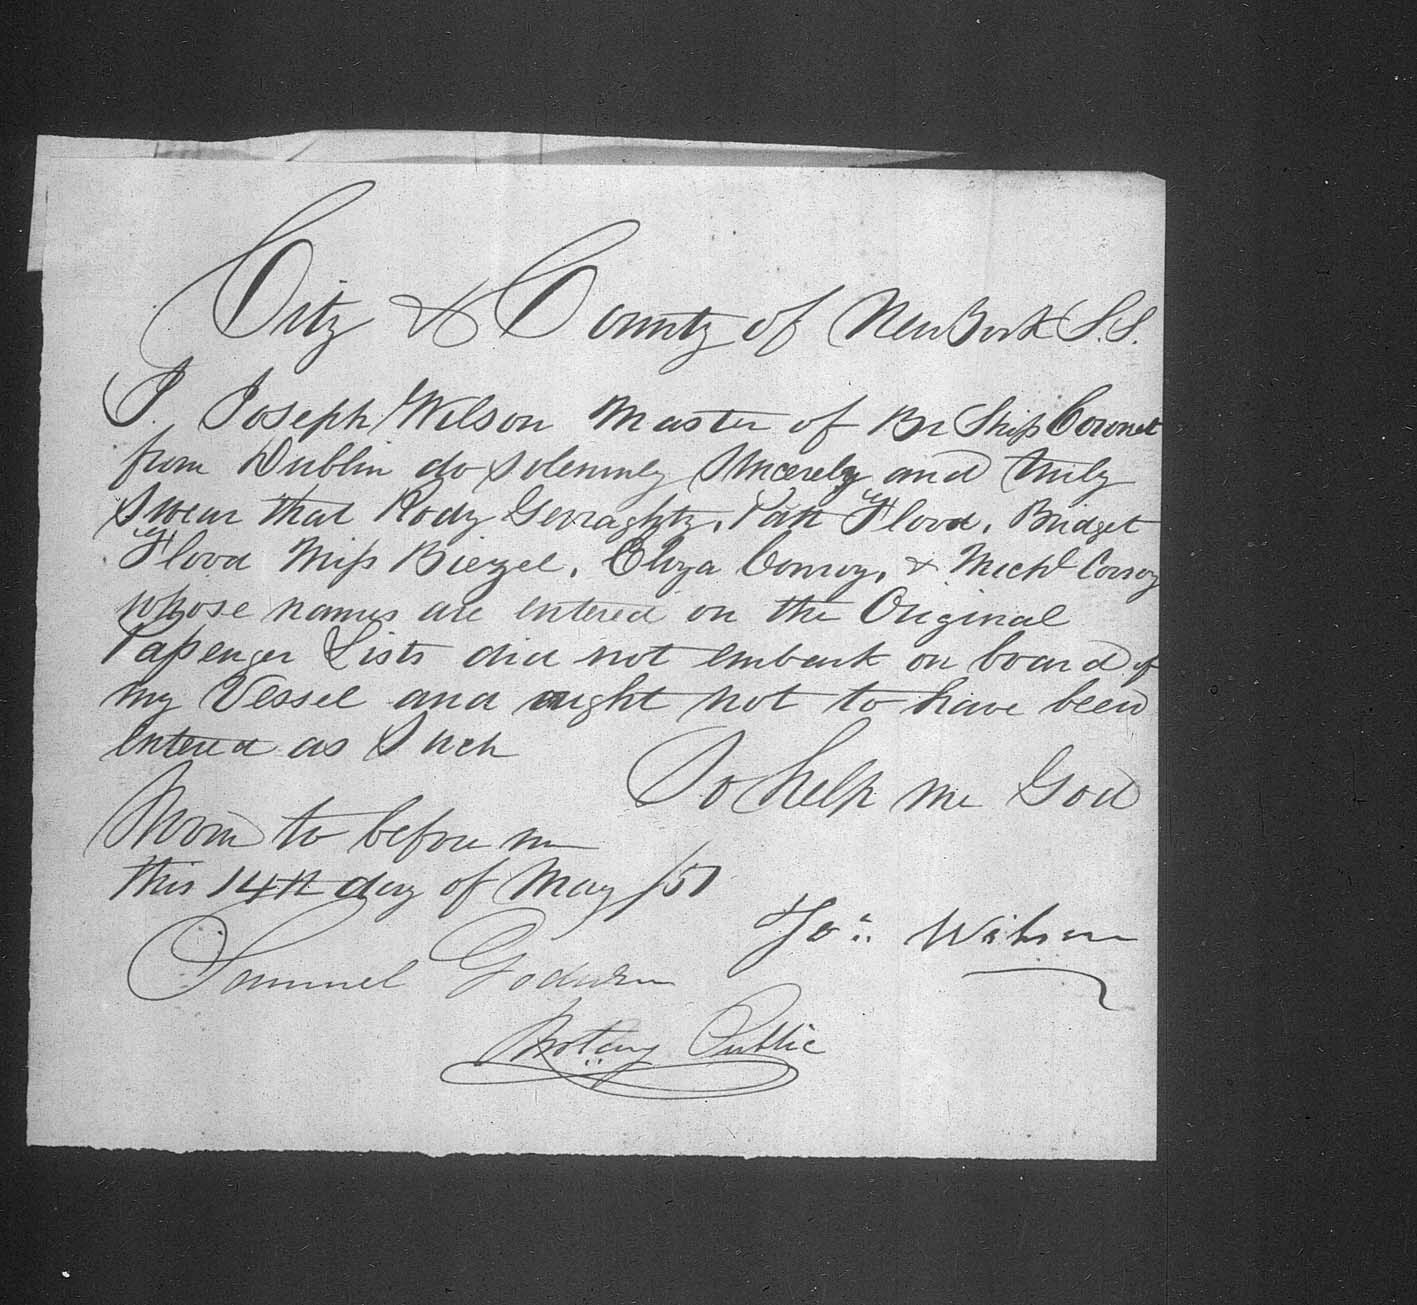 City & County of New York S.S.
I. Joseph Wilson Master of Br Ship Coronet
from Dublin do solemnly Sincerely and truly
Swear that Rody Gerraghty, Patk Flood, Bridget
Flood Miss Biezel, Eliza Conroy, & Michl Conroy
whose names are entered on the Original
Passenger Lists did not embark on board of
my Vessel and ought not to have been
entered as Such
So help me God
Sworn to before me
this 14th day of May /51
Jos. Wilson
Samuel Godwin
Notary Public